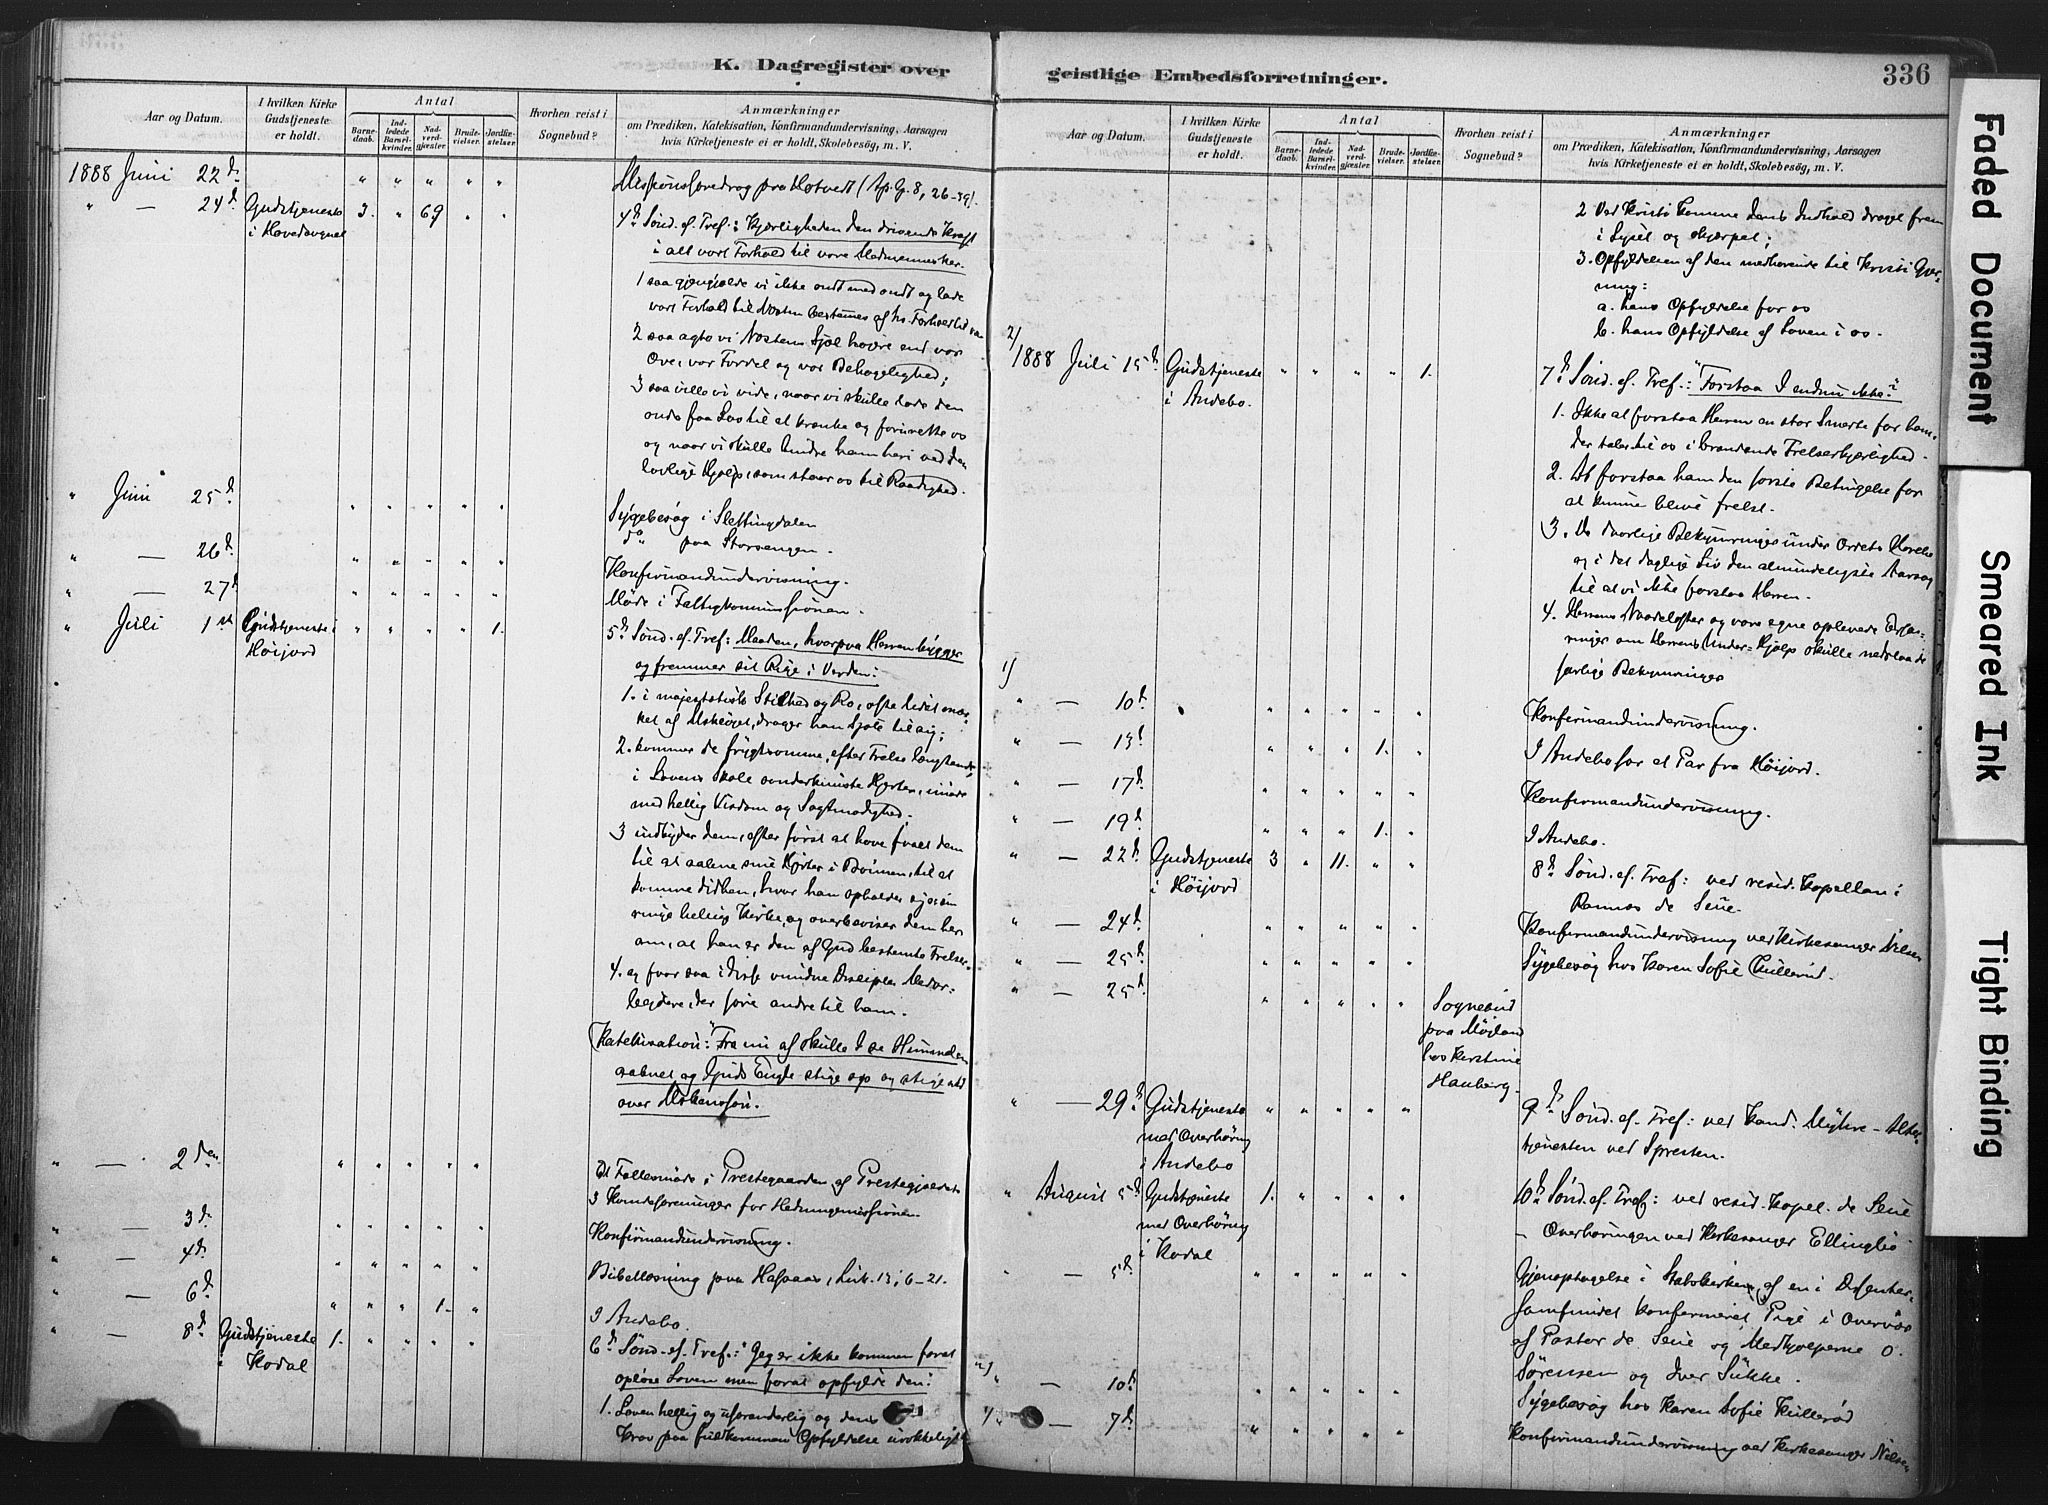 K. Dagregister over
Aar og Datum.
I hvilken Kirke Gudstjeneste er holdt.
Antal
Barnedaab.
Indledede Barselkvinder.
Nadverdgjæster.
Brudevielser.
Jordfæstelser.
Hvorhen reist i Sognebud?
Anmærkninger
om Prædiken, Katekisation, Konfirmandundervisning, Aarsagen
hvis Kirketjeneste ei er holdt, Skolebesøg, m. V.
1888 Juni 22d. " " " " " Missionsforedrag paa Hotvedt (Ap. G. 8, 26-39).
" — 24d. Gudstjeneste 3. " 69 " " 4d. Sønd. ef. Tref.: Kjærligheden den drivende Kraft
i Hovedsognet
i alt vort Forhold til vore Medmennesker.
1 saa gjengjælde vi ikke ondt med ondt og lade
vort Forhold til Næsten bestemmes af hs. Forhold til
2 saa agte vi Næstens Sjæl høiere end vor
Ære, vor Fordel og vor Behagelighed;
3 saa ville vi vide, naar vi skulle lade den
onde faa Lov til at krænke og forurette os
og naar vi skulle hindre ham heri ved den
lovlige Hjælp, som staar os til Raadighed.
" Juni 25d. " " " " " Sygebesøg i Slettingdalen
do " paa Storsengen.
" — 26d. " " " " " Konfirmandundervisning.
" — 27d " " " " " Møde i Fattigkommissionen.
" Juli 1st Gudstjeneste i " " " " 1. 5d. Sønd. ef. Tref: Maaden, hvorpaa Herren bygger
Høijord
og fremmer sit Rige i Verden:
1. i majestætisk Stilhed og Ro, ofte lidet mær-
ket af Mskeøiet, drager han Sjæle til sig;
2. kommer de frygtsomme, efter Frelse længtende,
i Lovens Skole sønderknuste Hjerter, imøde
med hellig Visdom og Sagtmodighed;
3 indbyder dem, efter først at have faaet dem
til at aabne sine Hjerter i Bønnen, til at
komme didhen, hvor han opholder sig i sin
ringe hellige Kirke, og overbeviser dem her
om, at han er den af Gud bestemte Frelser.
4. og faar saa i disse vundne Disciple Medar-
bejdere, der føre andre til ham.
Katekisation: "Fra nu af skulle I se Himmelen
aabnet og Guds Engle stige op og stige ned
over Mskenssøn.
" — 2den " " " " " Et Fællesmøde i Prestegaarden af Prestegjældets
3 Kvindeforeninger for Hedningemissionen.
" — 3d. " " " " " Konfirmandundervisning.
" — 4d. " " " " " Bibellæsning paa Hafsaas, Luk. 13, 6-21.
" — 6d. " " " 1. " I Andebo.
" — 8d. Gudstjeneste 1. " " " " 6d. Sønd. ef. Tref.: "Jeg er ikke kommen forat
i Kodal
opløse Loven men forat opfylde den":
1. Loven hellig og uforanderlig og dens
Krav paa fuldkommen Opfyldelse urokkeligt
geistlige Embedsforretninger.
336
Aar og Datum.
I hvilken Kirke Gudstjeneste er holdt.
Antal
Barnedaab.
Indledede Barselkvinder.
Nadverdgjæster.
Brudevielser.
Jordfæstelser.
Hvorhen reist i Sognebud?
Anmærkninger
om Prædiken, Katekisation, Konfirmandundervisning, Aarsagen
hvis Kirketjeneste ei er holdt, Skolebesøg, m. V.
2 Ved Kristi Komme dens Indhold draget frem
i Lyset og skjærpet;
3. Opfyldelsen af den medhørende til Kristi Gjer-
ning:
a. hans Opfyldelse for os
b. hans Opfyldelse af Loven i os.
2/ 1888 Juli 15d. Gudstjeneste " " " " 1. 7d. Sønd. ef. Tref.: "Forstaa I endnu ikke"
i Andebo.
1. Ikke at forstaa Herren en stor Smerte for ham,
der taler til os i brændende Frelserkjærlighed.
2. At forstaa ham den første Betingelse for
at kunne blive frelst.
3. De dvorlige Bekymringer under Ordets Hørelse
og i det daglige Liv den almindeligste Aarsag
til at vi ikke forstaa Herren.
4. Herrens Naadeløfter og vore egne oplevede Erfa-
ringer om Herrens Under-Hjælp skulle nedslaa de
farlige Bekymringer
1) " — 10d. " " " " " Konfirmandundervisning.
" — 13d. " " " 1. " I Andebo for et Par fra Høijord.
" — 17d. " " " " " Konfirmandundervisning.
" — 19d. " " " 1. " I Andebo.
" — 22d. Gudstjeneste 3 " 11. " " 8d. Sønd. ef. Tref: ved resid. Kapellan i
i Høijord
Ramnæs de Seue.
" — 24d. " " " " " Konfirmandundervisning ved Kirkesanger Nilsen
" — 25d. " " " " " Sygebesøg hos Karen Sofie Kullerød.
" — 25d. " " " " " Sognebud
paa Møjland
hos Kirstine
Hauberg.
" — 29d. Gudstjeneste " " " " " 9d. Sønd. ef. Tref: ved Kand. Myhre - Alter-
med Overhøring
i Andebo
tjenesten ved Spresten.
" August 5d. Gudstjeneste 1. " " " " 10d. Sønd. ef. Tref: ved resid. Kapel. de Seue
med Overhøring
i Kodal
- Overhøringen ved Kirkesanger Ellingbø
" — 5d. " " " " " Gjenoptagelse i Statskirken af en i Dissenter-
samfundet konfirmeret Pige i Overvær
af Pastor de Seue og Medhjælperne O.
Sørensen og Iver Sukke.
2) " — 10d. " " " " " Sygebesøg hos Karen Sofie Kullerød
1/ " — 7d. " " " " " Konfirmandundervisning ved Kirkesanger Nilsen
Faded Document
Smeared Ink
Tight Binding